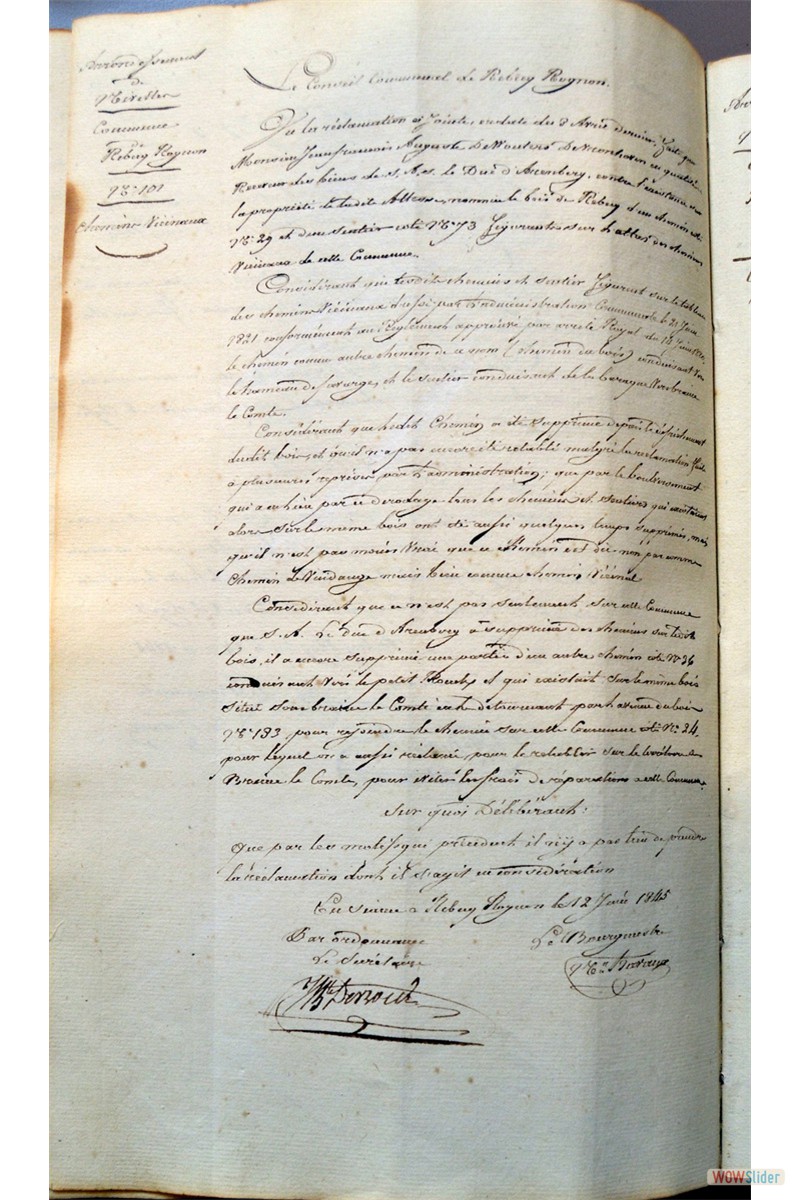 Arrondissement
de
Nivelles
Commune
de
Rebecq Rognon
N° 101
Chemins Vicinaux
Le Conseil Communal de Rebecq Rognon.
Vu la réclamation ci Jointe, en date du 8 Avril dernier, faite par
Monsieur Jean francois Auguste DeWouters De en qualité
Receveur des biens de S. A. S. le Duc d'Arenberg, contre l'existence sur
la propriété de ladite Altesse, nommée le bois de Rebecq d'un chemin coté
N° 29 et d'un Sentier coté N° 73 figurantes sur l'atlas des chemins
Vicinaux de cette Commune.
Considérant que lesdits chemins et sentier figurent sur le tableau
des chemins Vicinaux dressé par l'administration Communale le 21 Juin
1821 conformément au Règlement approuvé par arrêté Royal du
le chemin comme autre chemin de ce nom (chemin du bois) conduisant vers
le hameau de et le sentier conduisant de la vers braine
le Comte.
Considérant que ledit Chemin a été supprimé depuis le défrichement
dudit bois, et qu'il n'a pas encore été rétabli malgré la réclamation faite
à plusieurs reprises par l'administration; que par le boulversement
qui a eu lieu par ce derodage tous les chemins et sentiers qui existaient
alors sur le même bois ont été aussi quelques temps supprimés, mais
qu'il n'est pas moins vrai que ce chemin est dû non pas comme
chemin de Vindange mais bien comme chemin Vicinal
Considérant que ce n'est pas seulement sur cette Commune
que S. A. Le Duc d'Arenberg a supprimé des chemins sur ledit
bois, il a encore supprimé une partie d'un autre chemin coté N° 26
conduisant vers le petit et qui existait sur le même bois
situé sous braine le Comte en le détournant par l'avenue du bois
N° 183 pour rejoindre le chemin sur cette Commune coté N° 24,
pour lequel on a aussi réclamé, pour le rétablir sur le territoire de
Braine le Comte, pour éviter les frais de réparations a cette Commune.
Sur quoi Délibérant:
Que par les motifs qui précèdent il n'y a pas lieu de prendre
la réclamation dont il s'agit en considération
En séance a Rebecq Rognon le 12 Juin 1845
Par ordonnance
Le Secrétaire
Le Bourgmestre
WOWSlider